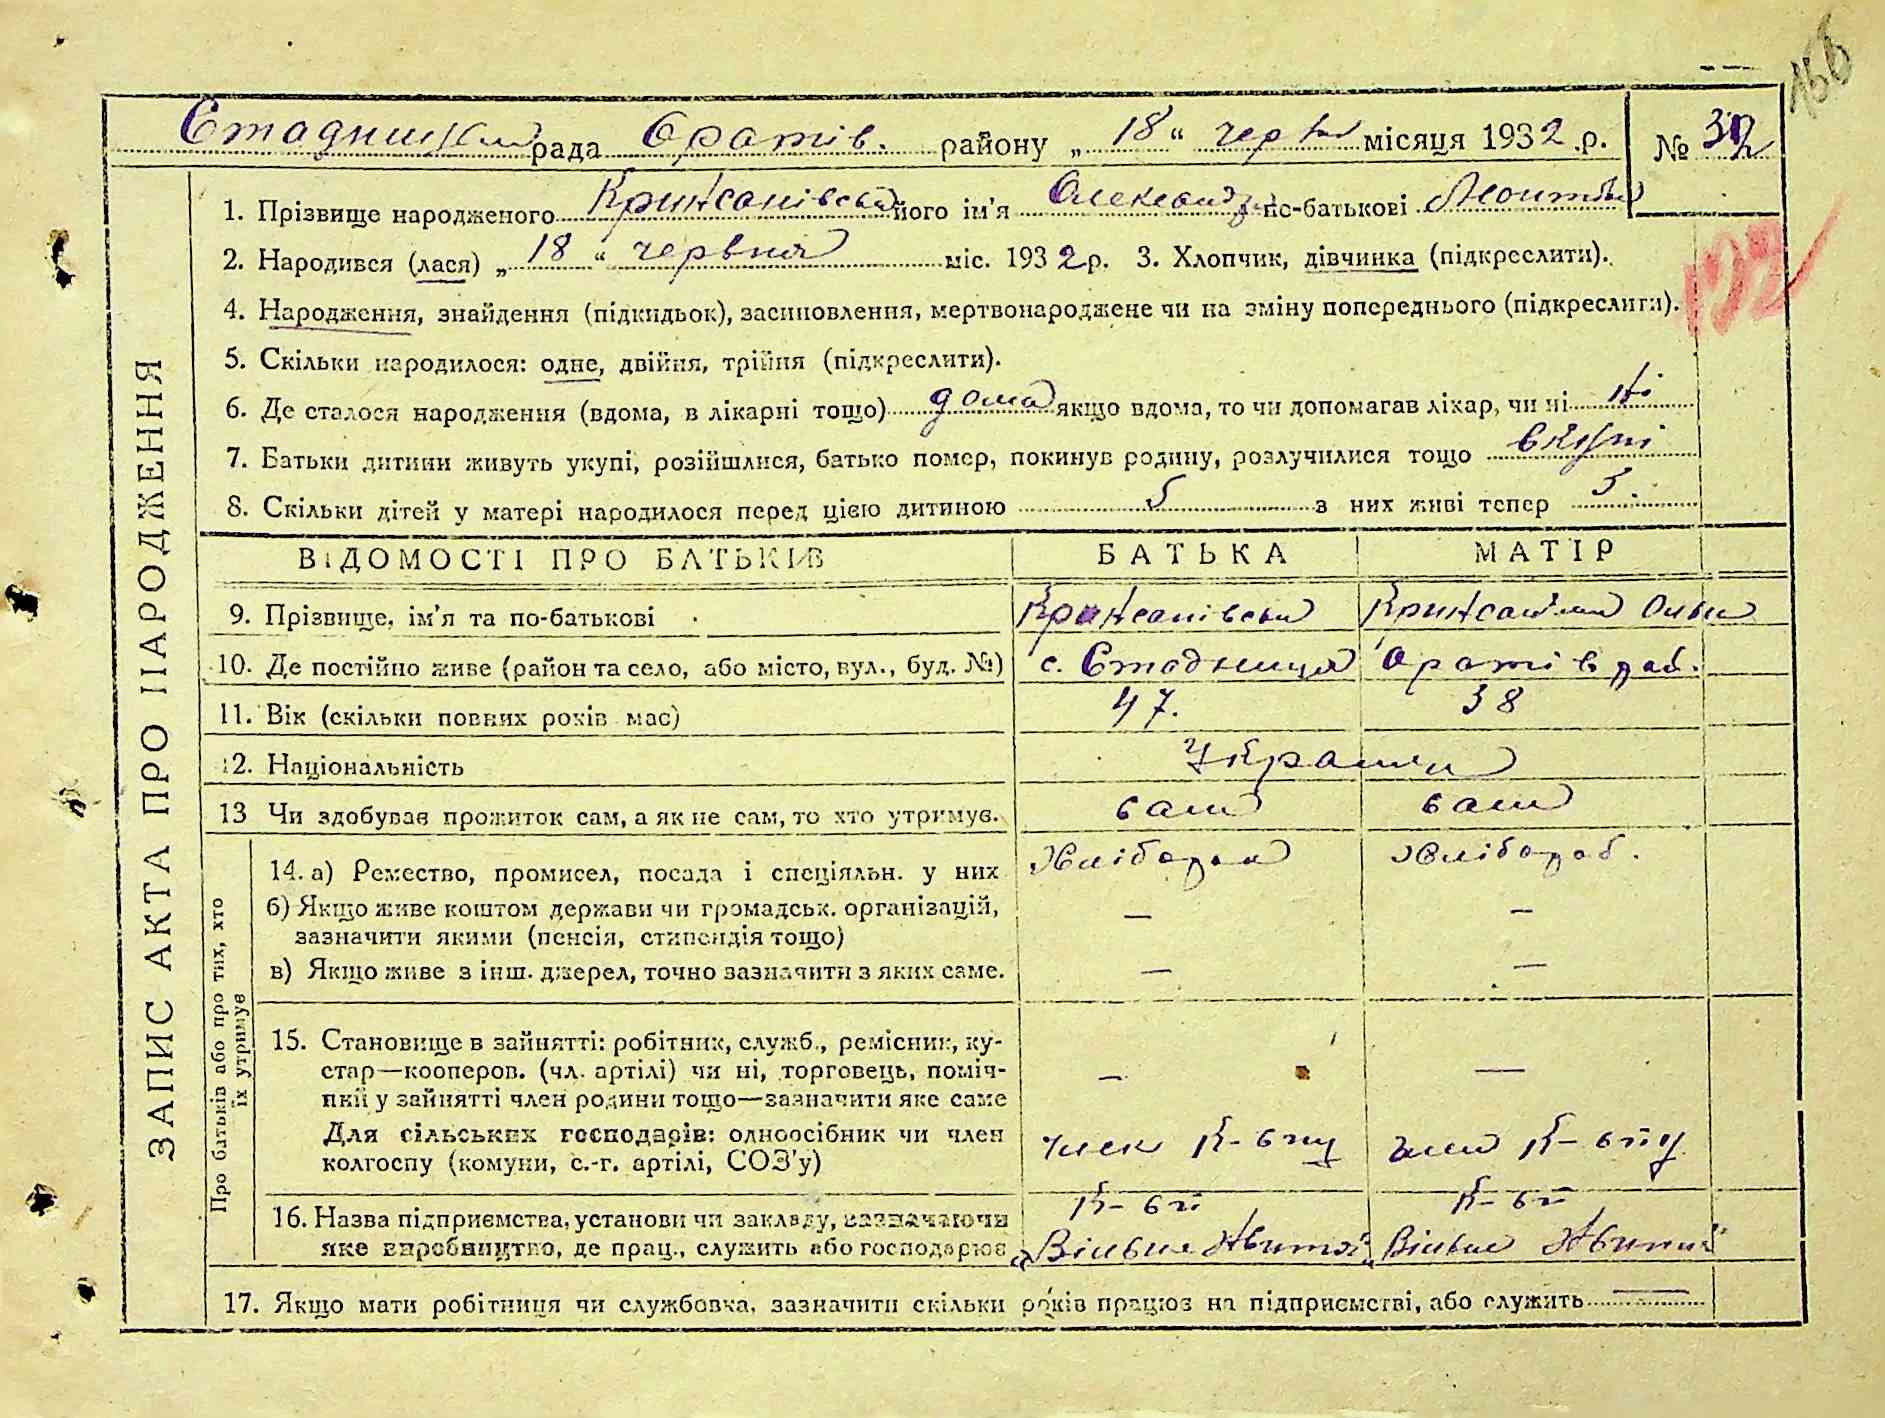 166
Стадницька рада Оратів. району „18“ червня місяця 1932 .р. № 32
1. Прізвище народженого Крижанівська його ім'я Олександра по-батькові
2. Народився (лася) „18“ червня міс. 1932 р. 3. Хлопчик, дівчинка (підкреслити).
192
4. Народження, знайдення (підкидьок), засиновлення, мертвонароджене чи на зміну попереднього (підкреслити).
5. Скільки народилося: одне, двійня, трійня (підкреслити).
6. Де сталося народження (вдома, в лікарні тощо) дома якщо вдома, то чи допомагав лікар, чи ні ні
7. Батьки дитини живуть укупі, розійшлися, батько помер, покинув родину, розлучилися тощо вкупі
8. Скільки дітей у матері народилося перед цією дитиною 5 з них живі тепер 3.
ВІДОМОСТІ ПРО БАТЬКІВ БАТЬКА МАТІР
9. Прізвище, ім'я та по-батькові Крижанівськи Крижанівська Ольга
10. Де постійно живе (район та село, або місто, вул., буд. №) с. Стадниця Оратів рай.
11. Вік (скільки повних років має) 47. 38
12. Національність Українці
13 Чи здобував прожиток сам, а як не сам, то хто утримує. сам сама
14. а) Ремество, промисел, посада і спеціяльн. у них Хлібороб Хлібороб.
б) Якщо живе коштом держави чи громадськ. організацій, — —
зазначити якими (пенсія, стипендія тощо)
в) Якщо живе з інш. джерел, точно зазначити з яких саме. — —
15. Становище в зайнятті: робітник, служб., ремісник, ку-
стар—кооперов. (чл. артілі) чи ні, торговець, поміч- — —
ний у зайнятті член родини тощо—зазначити яке саме
Для сільських господарів: одноосібник чи член член К-спу член К-спу
колгоспу (комуни, с.-г. артілі, СОЗ'у)
К-сп К-сп
16. Назва підприємства, установи чи закладу, зазначаючи
яке виробництво, де прац., служить або господарює „Вільне Життя“ „Вільне Життя“
17. Якщо мати робітниця чи службовка, зазначити скільки років працює на підприємстві, або служить —
ЗАПИС АКТА ПРО НАРОДЖЕННЯ
Про батьків або про тих, хто
їх утримує